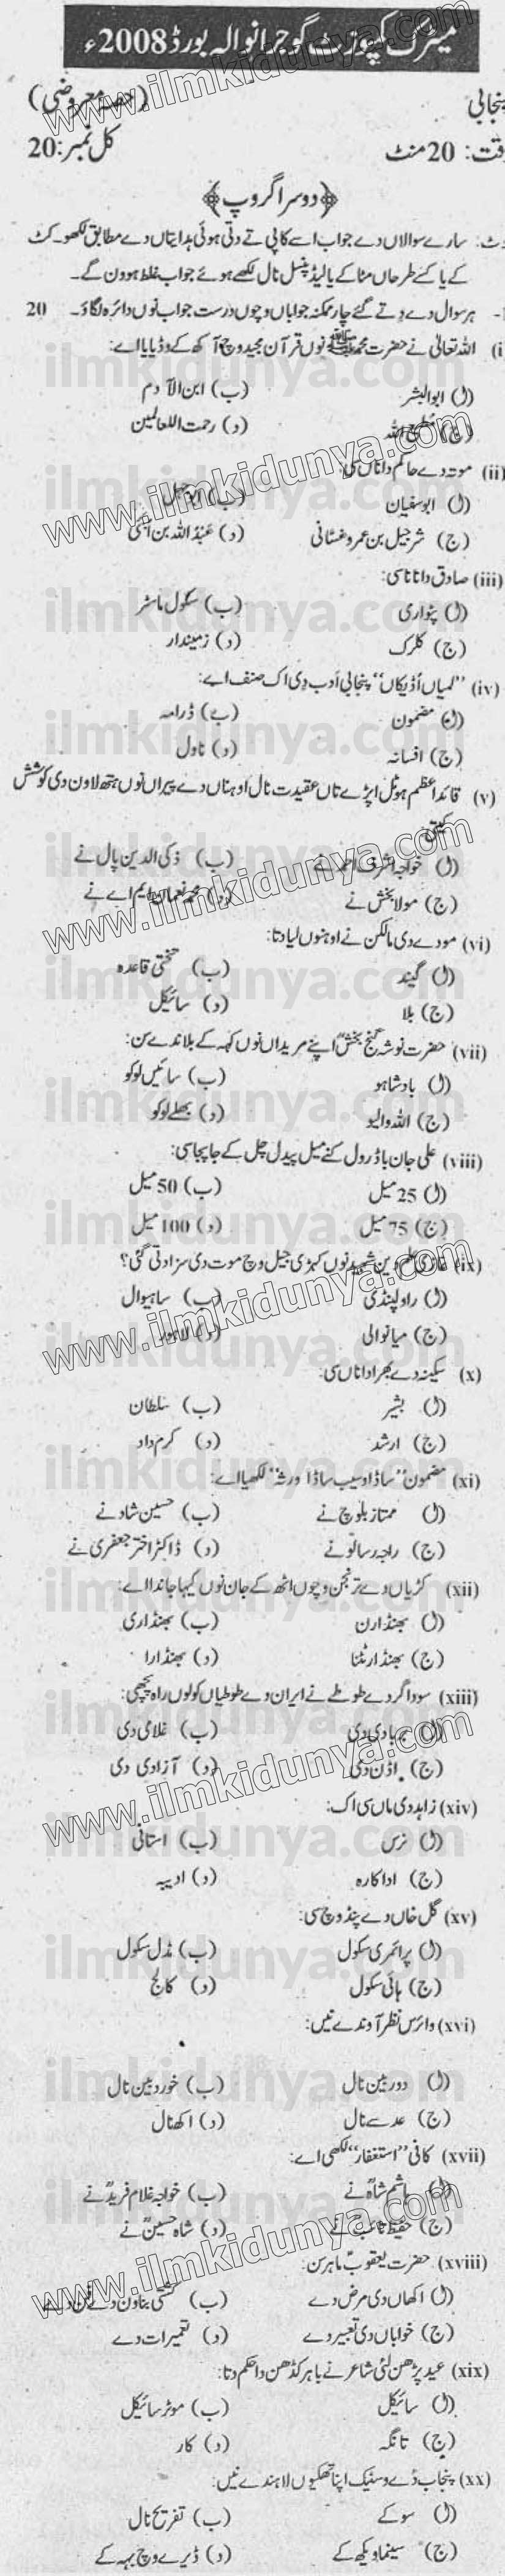 میٹرک کمپوزٹ گوجرانوالہ بورڈ 2008ء
پنجابی (حصہ معروضی)
وقت: 20 منٹ کل نمبر: 20
﴿دوسرا گروپ﴾
نوٹ: سارے سوالاں دے جواب ایسے کاپی تے دتی ہوئی ہدایتاں دے مطابق لکھو۔ کٹ
کے یا کسے طرحاں مٹا کے یا لیڈ پنسل نال لکھے ہوئے جواب غلط ہوون گے۔
1- ہر سوال دے دتے گئے چار ممکنہ جواباں وچوں درست جواب نوں دائرہ لگاؤ۔ 20
(i) اللہ تعالیٰ نے حضرت محمد ﷺ نوں قرآن مجید وچ آکھ کے وڈیایا اے:
(ا) ابوالبشر (ب) ابن الآدم
(ج) مطیع اللہ (د) رحمت اللعالمین
(ii) موتہ دے حاکم دا ناں سی:
(ا) ابوسفیان (ب) ابوجہل
(ج) شرجیل بن عمرو غسانی (د) عبداللہ بن ابی
(iii) صادق دا نانا سی:
(ا) پٹواری (ب) سکول ماسٹر
(ج) کلرک (د) زمیندار
(iv) "لمیاں اُڈیکاں" پنجابی ادب دی اک صنف اے:
(ا) مضمون (ب) ڈرامہ
(ج) افسانہ (د) ناول
(v) قائداعظم ہوٹل اپڑے تاں عقیدت نال اوہناں دے پیراں نوں ہتھ لاون دی کوشش
کیتی:
(ا) خواجہ اشرف احمد نے (ب) ذکی الدین پال نے
(ج) مولا بخش نے (د) محمد نعمان ایم اے نے
(vi) مودے دی مالکن نے اوہنوں لیا دتا:
(ا) گیند (ب) تختی قاعدہ
(ج) بلا (د) سائیکل
(vii) حضرت نوشہ گنج بخشؒ اپنے مریداں نوں کہہ کے بلاندے سن:
(ا) بادشاہو (ب) سائیں لوکو
(ج) اللہ والیو (د) بھلے لوکو
(viii) علی جان باڈر ول کنے میل پیدل چل کے جاپجا سی:
(ا) 25 میل (ب) 50 میل
(ج) 75 میل (د) 100 میل
(ix) غازی علم دین شہید نوں کہڑی جیل وچ موت دی سزا دتی گئی؟
(ا) راولپنڈی (ب) ساہیوال
(ج) میانوالی (د) لاہور
(x) سکینہ دے بھرا دا ناں سی:
(ا) بشیر (ب) سلطان
(ج) ارشد (د) کرم داد
(xi) مضمون "ساڈا وسیب ساڈا ورثہ" لکھیا اے:
(ا) ممتاز بلوچ نے (ب) حسین شاد نے
(ج) راجہ رسالو نے (د) ڈاکٹر اختر جعفری نے
(xii) کڑیاں دے ترنجن وچوں اٹھ کے جان نوں کیہا جاندا اے:
(ا) بھنڈارن (ب) بھنڈاری
(ج) بھنڈار ٹٹنا (د) بھنڈارا
(xiii) سوداگر دے طوطے نے ایران دے طوطیاں کولوں راہ پچھی:
(ا) بربادی دی (ب) غلامی دی
(ج) اڈن دی (د) آزادی دی
(xiv) زاہد دی ماں سی اک:
(ا) نرس (ب) استانی
(ج) اداکارہ (د) ادیبہ
(xv) گل خاں دے پنڈ وچ سی:
(ا) پرائمری سکول (ب) مڈل سکول
(ج) ہائی سکول (د) کالج
(xvi) وائرس نظر آوندے نیں:
(ا) دوربین نال (ب) خوردبین نال
(ج) عدسے نال (د) اکھ نال
(xvii) کافی "استغفار" لکھی اے:
(ا) ہاشم شاہؒ نے (ب) خواجہ غلام فریدؒ نے
(ج) حفیظ تائب نے (د) شاہ حسینؒ نے
(xviii) حضرت یعقوبؑ ماہر سن:
(ا) اکھاں دی مرض دے (ب) کشتی بناون دے فن دے
(ج) خواباں دی تعبیر دے (د) تعمیرات دے
(xix) عید پڑھن لئی شاعر نے باہر کڈھن دا حکم دتا:
(ا) سائیکل (ب) موٹر سائیکل
(ج) تانگہ (د) کار
(xx) پنجاب دے وسنیک اپنا تھکیوں لاہندے نیں:
(ا) سو کے (ب) تفریح نال
(ج) سینما ویکھ کے (د) ڈیرے وچ بہہ کے
www.ilmkidunya.com